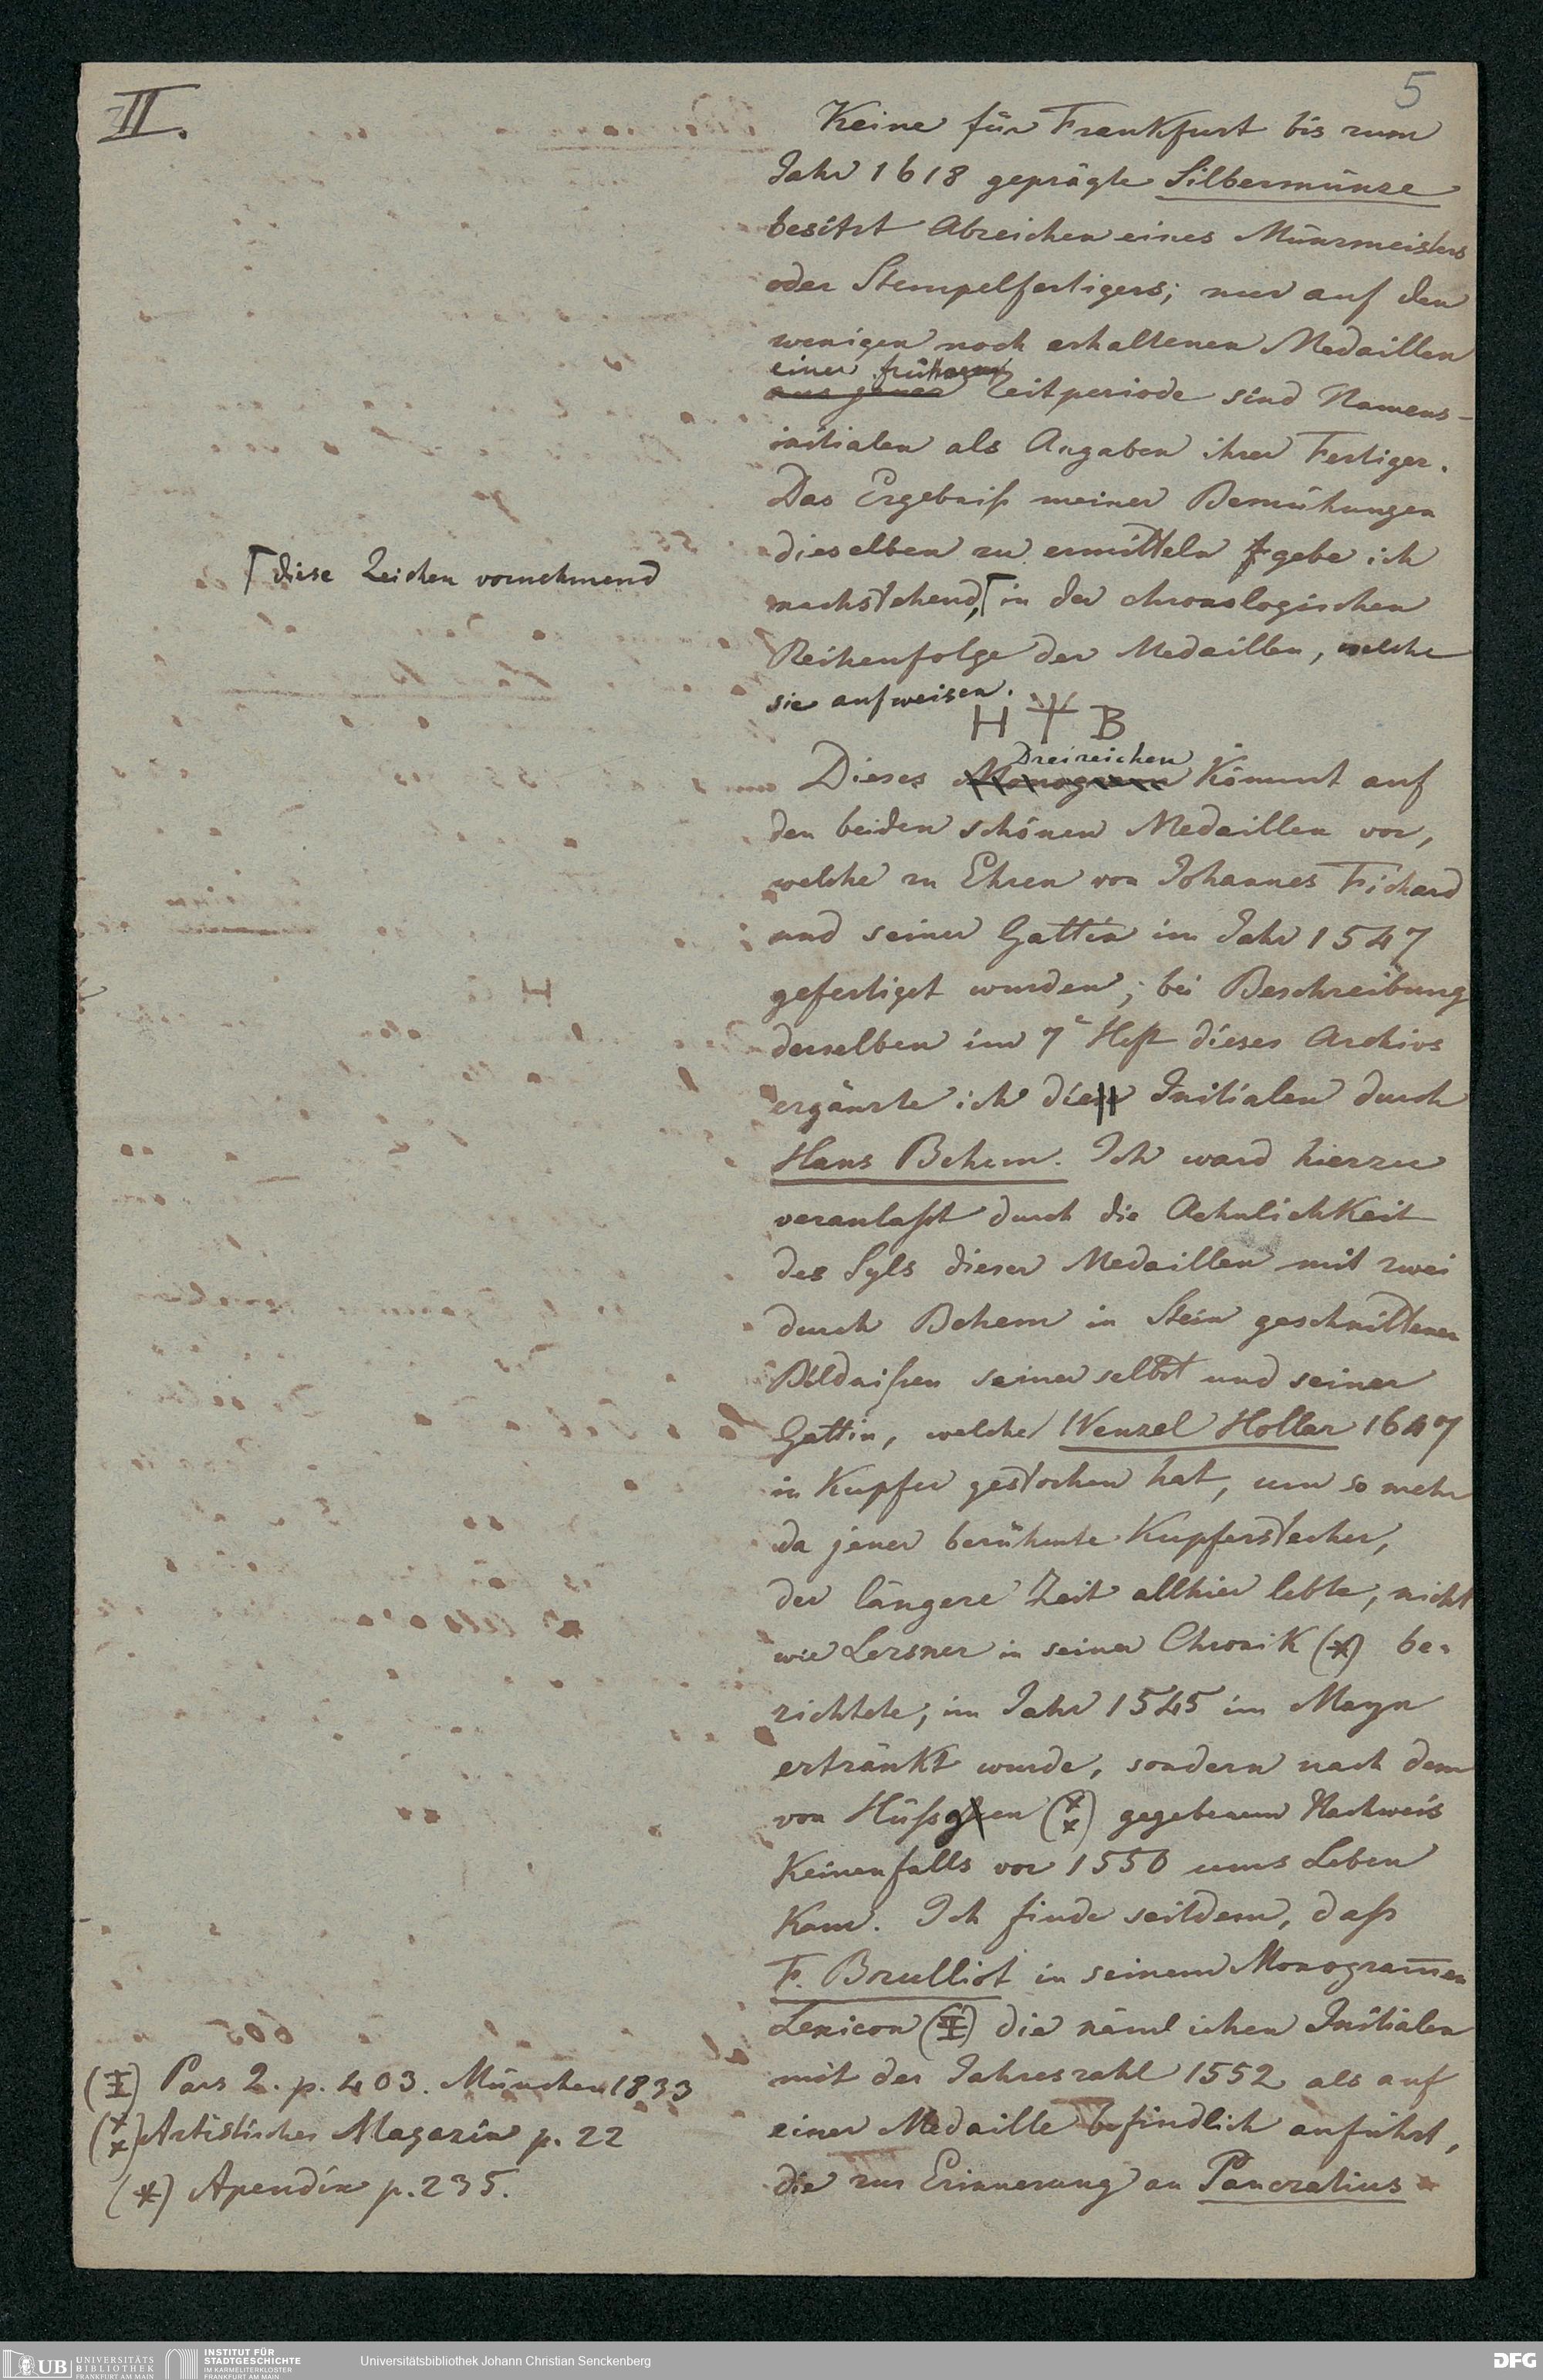 II.
5
Keine für Frankfurt bis zum
Jahr 1618 geprägte Silbermünze
besitzt Abzeichen eines Münzmeisters
oder Stempelfertigers; nur auf den
wenigen noch erhaltenen Medaillen
einer früheren
aus jener Zeitperiode sind Namens-
initialen als Angaben ihrer Fertiger.
Das Ergebniß meiner Bemühungen
dieselben zu ermitteln gebe ich
nachstehend, ⌈ in der chronologischen
⌈ diese Zeichen vornehmend
Reihenfolge der Medaillen, welche
sie aufweisen.
H B
Dreizeichen
Dieses Monogramm kömmt auf
den beiden schönen Medaillen vor,
welche zu Ehren von Johannes Fichard
und seiner Gattin im Jahr 1547
gefertiget wurden; bei Beschreibung
derselben im 7e Heft dieses Archivs
ergänzte ich die Initialen durch
Hans Behem. Ich ward hierzu
veranlaßt durch die Aehnlichkeit
des Syls dieser Medaillen mit zwei
durch Behem in Stein geschnittenen
Bildnißen seiner selbst und seiner
Gattin, welche Wenzel Hollar 1647
in Kupfer gestochen hat, um so mehr
da jener berühmte Kupferstecher,
der längere Zeit allhier lebte, nicht
wie Lersner in seiner Chronik (*) be-
richtete, im Jahr 1545 im Mayn
ertränkt wurde, sondern nach dem
von Hüßgen (**) gegebenem Nachweis
Keinenfalls vor 1550 ums Leben
Kam. Ich finde seitdem, daß
F. Brulliot in seinem Monogram̅en
Lexicon (‡) die nämlichen Initialen
mit der Jahreszahl 1552 als auf
einer Medaille befindlich anführt,
die zur Erinnerung an Pancratius
(‡) Pars 2. p. 403. München 1833
(**) Artistisches Magazin p. 22
(*) Apendix p. 235.
UB UNIVERSITÄTS
BIBLIOTHEK
FRANKFURT AM MAIN
INSTITUT FÜR
STADTGESCHICHTE
IM KARMELITERKLOSTER
FRANKFURT AM MAIN
Universitätsbibliothek Johann Christian Senckenberg
DFG